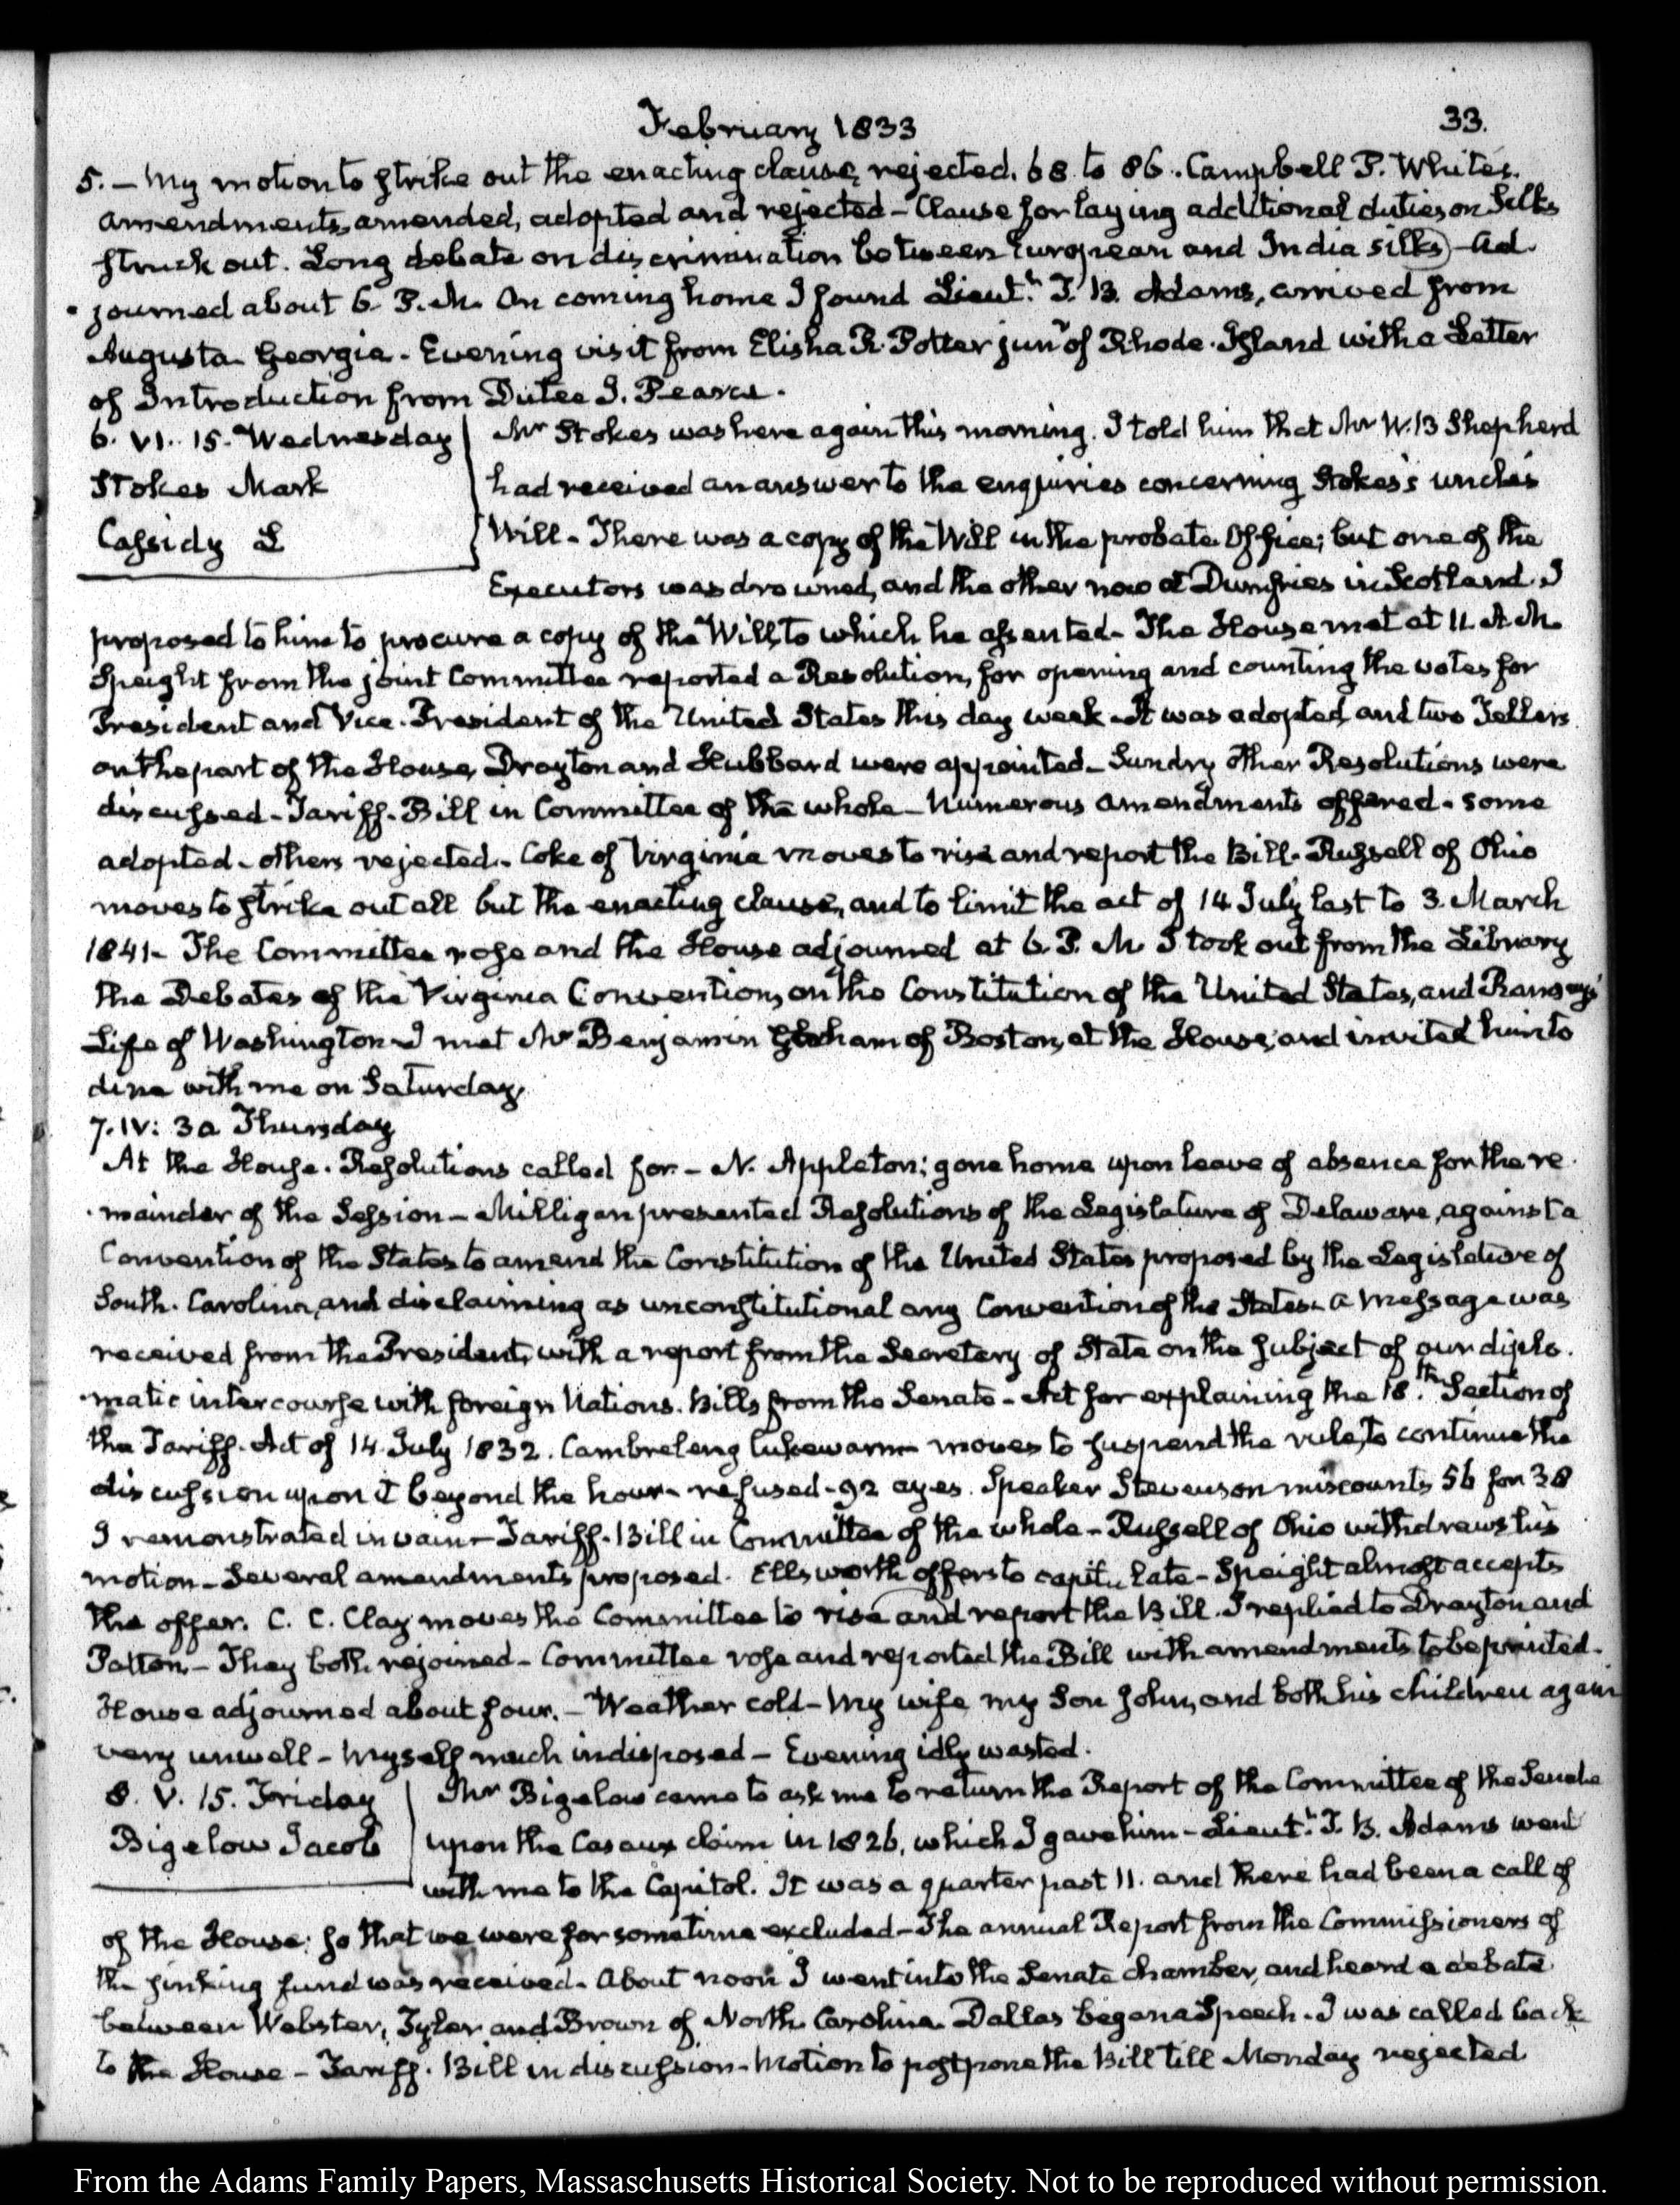 February 1833
33.
5. – My motion to strike out the enacting clause, rejected. 68 to 86. Campbell P. White's.
amendments, amended, adopted and rejected – Clause for laying additional duties on Silks
struck out. Long debate on discrimination between European and India silks – Ad-
journed about 6. P.M. On coming home I found Lieutt. T. B. Adams, arrived from
Augusta Georgia – Evening visit from Elisha R. Potter junr of Rhode-Island with a Letter
of Introduction from Dutee J. Pearce.
6. VI.. 15. Wednesday
Stokes Mark
Cassidy
Mr Stokes was here again this morning. I told him that Mr W. B Shepherd
had received an answer to the enquiries concerning Stokes's uncle's
Will – There was a copy of the Will in the probate Office; but one of the
Executors was drowned, and the other now at Dumfries in Scotland. I
proposed to him to procure a copy of the Will, to which he assented – The House met at 11. A.M.
Speight from the joint Committee reported a Resolution, for opening and counting the votes for
President and Vice-President of the United States this day week – It was adopted, and two Tellers
on the part of the House, Drayton and Hubbard were appointed – Sundry other Resolutions were
discussed – Tariff-Bill in Committee of the whole – Numerous amendments offered – some
adopted – others rejected. Coke of Virginia moves to rise and report the Bill. Russell of Ohio
moves to strike out all but the enacting clause, and to limit the act of 14 July last to 3. March
1841 – The Committee rose and the House adjourned at 6. P.M. I took out from the Library
the Debates of the Virginia Convention, on the Constitution of the United States, and Ramsay's
Life of Washington – I met Mr Benjamin Gorham of Boston, at the House, and invited him to
dine with me on Saturday.
7. IV: 30 Thursday
At the House. Resolutions called for. – N. Appleton; gone home upon leave of absence for the re-
mainder of the Session – Milligan presented Resolutions of the Legislature of Delaware, against a
Convention of the States to amend the Constitution of the United States proposed by the Legislature of
South-Carolina, and disclaiming as unconstitutional any Convention of the States – A Message was
received from the President, with a report from the Secretary of State on the subject of our diplo-
matic intercourse with foreign Nations. Bills from the Senate – Act for explaining the 18.th Section of
the Tariff-Act of 14. July 1832. Cambreleng lukewarm moves to suspend the rule, to continue the
discussion upon it beyond the hour – refused – 92 ayes. Speaker Stevenson miscounts 56 for 38
I remonstrated in vain – Tariff-Bill in Committee of the whole – Russell of Ohio withdraws his
motion – Several amendments proposed. Ellsworth offers to capitulate – Speight almost accepts
the offer. C. C. Clay moves the Committee to rise and report the Bill. I replied to Drayton and
Patton, – They both rejoined – Committee rose and reported the Bill with amendments to be printed –
House adjourned about four. – Weather cold – My wife, my Son John, and both his children again
very unwell – Myself much indisposed – Evening idly wasted.
8. V. 15. Friday
Bigelow Jacob
Mr Bigelow came to ask me to return the Report of the Committee of the Senate
upon the Caseaux claim in 1826, which I gave him – Lieutt. T. B. Adams went
with me to the Capitol. It was a quarter past 11. and there had been a call of
of the House; so that we were for sometime excluded – The annual Report from the Commissioners of
the sinking fund was received – About noon I went into the Senate chamber, and heard a debate
between Webster, Tyler and Brown of North Carolina. Dallas began a Speech. I was called back
to the House – Tariff-Bill in discussion – Motion to postpone the Bill till Monday rejected
From the Adams Family Papers, Massachusetts Historical Society. Not to be reproduced without permission.